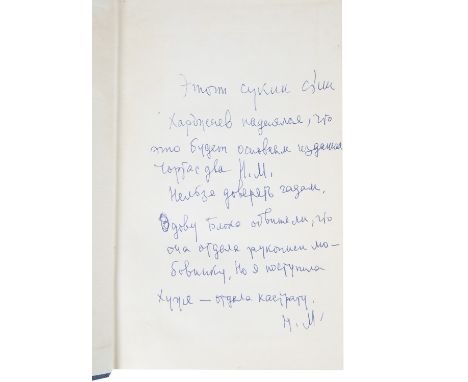 Этот сукин сын
Харджиев надеялся, что
это будет основным изданием
Чорта с два Н.М.
Нельзя доверять гадам.
Вдову Блока обвиняли, что
она отдала рукописи лю-
бовнику. Но я поступила
хуже — отдала кастрату.
Н. М.